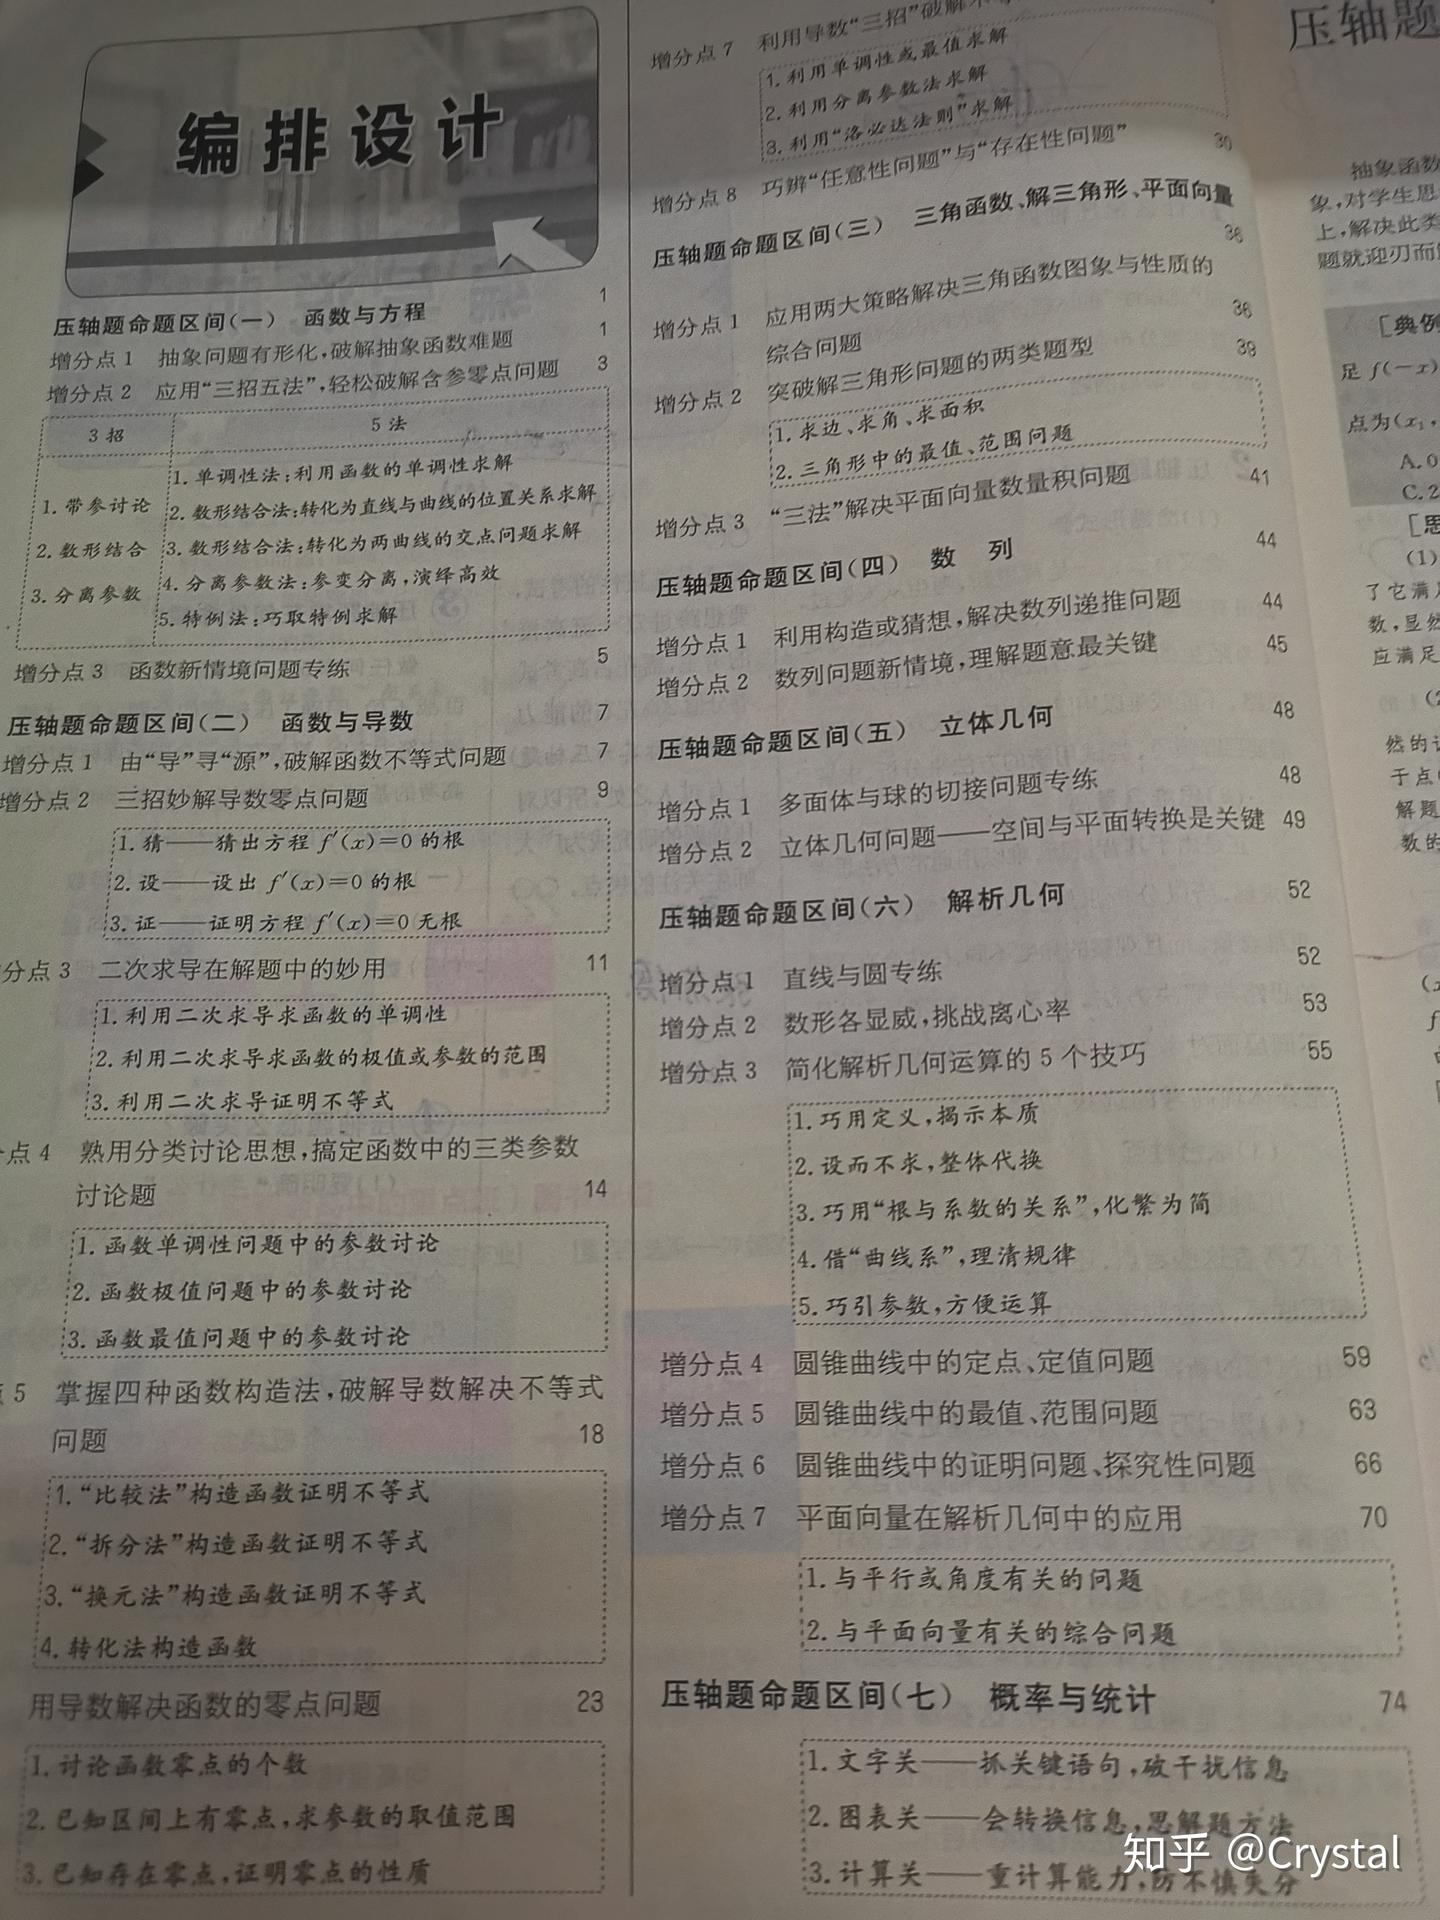 编排设计
压轴题命题区间(一) 函数与方程 1
增分点1 抽象问题有形化,破解抽象函数难题 1
增分点2 应用“三招五法”,轻松破解含参零点问题 3
3招 5法
1.带参讨论
2.数形结合
3.分离参数
1.单调性法:利用函数的单调性求解
2.数形结合法:转化为直线与曲线的位置关系求解
3.数形结合法:转化为两曲线的交点问题求解
4.分离参数法:参变分离,演绎高效
5.特例法:巧取特例求解
增分点3 函数新情境问题专练 5
压轴题命题区间(二) 函数与导数 7
增分点1 由“导”寻“源”,破解函数不等式问题 7
增分点2 三招妙解导数零点问题 9
1.猜——猜出方程 f′(x)=0 的根
2.设——设出 f′(x)=0 的根
3.证——证明方程 f′(x)=0 无根
分点3 二次求导在解题中的妙用 11
1.利用二次求导求函数的单调性
2.利用二次求导求函数的极值或参数的范围
3.利用二次求导证明不等式
点4 熟用分类讨论思想,搞定函数中的三类参数
讨论题 14
1.函数单调性问题中的参数讨论
2.函数极值问题中的参数讨论
3.函数最值问题中的参数讨论
5 掌握四种函数构造法,破解导数解决不等式
问题 18
1.“比较法”构造函数证明不等式
2.“拆分法”构造函数证明不等式
3.“换元法”构造函数证明不等式
4.转化法构造函数
用导数解决函数的零点问题 23
1.讨论函数零点的个数
2.已知区间上有零点,求参数的取值范围
3.已知存在零点,证明零点的性质
增分点7 利用导数“三招”破解
1.利用单调性或最值求解
2.利用分离参数法求解
3.利用“洛必达法则”求解
增分点8 巧辨“任意性问题”与“存在性问题” 30
压轴题命题区间(三) 三角函数、解三角形、平面向量
36
增分点1 应用两大策略解决三角函数图象与性质的
综合问题 36
增分点2 突破解三角形问题的两类题型 39
1.求边、求角、求面积
2.三角形中的最值、范围问题
增分点3 “三法”解决平面向量数量积问题 41
压轴题命题区间(四) 数 列 44
增分点1 利用构造或猜想,解决数列递推问题 44
增分点2 数列问题新情境,理解题意最关键 45
压轴题命题区间(五) 立体几何 48
增分点1 多面体与球的切接问题专练 48
增分点2 立体几何问题——空间与平面转换是关键 49
压轴题命题区间(六) 解析几何 52
增分点1 直线与圆专练 52
增分点2 数形各显威,挑战离心率 53
增分点3 简化解析几何运算的5个技巧 55
1.巧用定义,揭示本质
2.设而不求,整体代换
3.巧用“根与系数的关系”,化繁为简
4.借“曲线系”,理清规律
5.巧引参数,方便运算
增分点4 圆锥曲线中的定点、定值问题 59
增分点5 圆锥曲线中的最值、范围问题 63
增分点6 圆锥曲线中的证明问题、探究性问题 66
增分点7 平面向量在解析几何中的应用 70
1.与平行或角度有关的问题
2.与平面向量有关的综合问题
压轴题命题区间(七) 概率与统计 74
1.文字关——抓关键语句,破干扰信息
2.图表关——会转换信息,思解题方法
3.计算关——重计算能力,防不慎失分
压轴题
抽象函数
象,对学生思
上,解决此类
题就迎刃而
[典例
足 f(-x)
点为(x₁,
A.0
C.2
[思
(1)
了它满足
数,显然
应满足
(2
然的
于点
解题
数的
(x
f
知乎 @Crystal